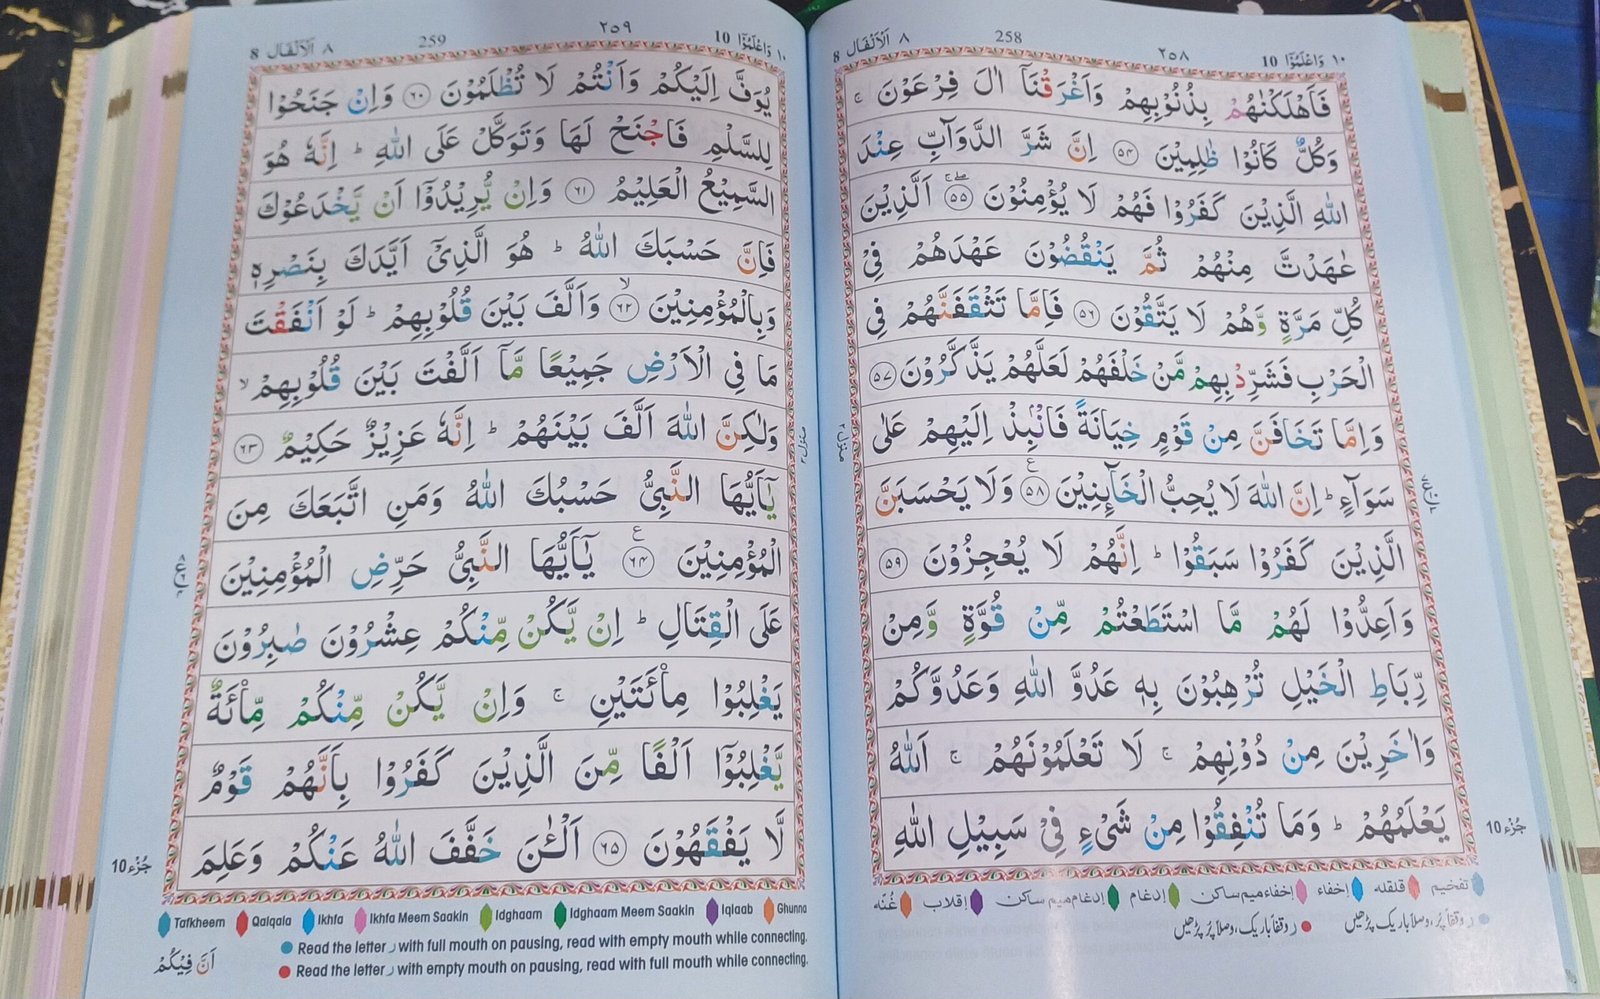 ١٠ وَاعْلَمُوْٓا 10
٢٥٨
258
٨ اَلْاَنْفَال 8
فَاَهْلَكْنٰهُمْ بِذُنُوْبِهِمْ وَاَغْرَقْنَآ اٰلَ فِرْعَوْنَ ۚ
وَكُلٌّ كَانُوْا ظٰلِمِيْنَ ۝٥٤ اِنَّ شَرَّ الدَّوَآبِّ عِنْدَ
اللّٰهِ الَّذِيْنَ كَفَرُوْا فَهُمْ لَا يُؤْمِنُوْنَ ۝٥٥ اَلَّذِيْنَ
عٰهَدْتَّ مِنْهُمْ ثُمَّ يَنْقُضُوْنَ عَهْدَهُمْ فِيْ
كُلِّ مَرَّةٍ وَّهُمْ لَا يَتَّقُوْنَ ۝٥٦ فَاِمَّا تَثْقَفَنَّهُمْ فِى
الْحَرْبِ فَشَرِّدْ بِهِمْ مَّنْ خَلْفَهُمْ لَعَلَّهُمْ يَذَّكَّرُوْنَ ۝٥٧
وَاِمَّا تَخَافَنَّ مِنْ قَوْمٍ خِيَانَةً فَانْۢبِذْ اِلَيْهِمْ عَلٰى
سَوَآءٍ ؕ اِنَّ اللّٰهَ لَا يُحِبُّ الْخَآئِنِيْنَ ۝٥٨ وَلَا يَحْسَبَنَّ
الَّذِيْنَ كَفَرُوْا سَبَقُوْا ؕ اِنَّهُمْ لَا يُعْجِزُوْنَ ۝٥٩
وَاَعِدُّوْا لَهُمْ مَّا اسْتَطَعْتُمْ مِّنْ قُوَّةٍ وَّمِنْ
رِّبَاطِ الْخَيْلِ تُرْهِبُوْنَ بِهٖ عَدُوَّ اللّٰهِ وَعَدُوَّكُمْ
وَاٰخَرِيْنَ مِنْ دُوْنِهِمْ ۚ لَا تَعْلَمُوْنَهُمْ ۚ اَللّٰهُ
يَعْلَمُهُمْ ؕ وَمَا تُنْفِقُوْا مِنْ شَيْءٍ فِيْ سَبِيْلِ اللّٰهِ
جُزْء 10
تفخیم قلقلہ إخفاء إخفاء میم ساکن إدغام إدغام میم ساکن إقلاب غُنّه
ر وقفاً پُر، وصلاً باریک پڑھیں
ر وقفاً باریک، وصلاً پُر پڑھیں
١٠ وَاعْلَمُوْٓا 10
٢٥٩
259
٨ اَلْاَنْفَال 8
يُوَفَّ اِلَيْكُمْ وَاَنْتُمْ لَا تُظْلَمُوْنَ ۝٦٠ وَاِنْ جَنَحُوْا
لِلسَّلْمِ فَاجْنَحْ لَهَا وَتَوَكَّلْ عَلَى اللّٰهِ ؕ اِنَّهٗ هُوَ
السَّمِيْعُ الْعَلِيْمُ ۝٦١ وَاِنْ يُّرِيْدُوْٓا اَنْ يَّخْدَعُوْكَ
فَاِنَّ حَسْبَكَ اللّٰهُ ؕ هُوَ الَّذِيْٓ اَيَّدَكَ بِنَصْرِهٖ
وَبِالْمُؤْمِنِيْنَ ۝٦٢ وَاَلَّفَ بَيْنَ قُلُوْبِهِمْ ؕ لَوْ اَنْفَقْتَ
مَا فِى الْاَرْضِ جَمِيْعًا مَّآ اَلَّفْتَ بَيْنَ قُلُوْبِهِمْ ۙ
وَلٰكِنَّ اللّٰهَ اَلَّفَ بَيْنَهُمْ ؕ اِنَّهٗ عَزِيْزٌ حَكِيْمٌ ۝٦٣
يٰٓاَيُّهَا النَّبِيُّ حَسْبُكَ اللّٰهُ وَمَنِ اتَّبَعَكَ مِنَ
الْمُؤْمِنِيْنَ ۝٦٤ يٰٓاَيُّهَا النَّبِيُّ حَرِّضِ الْمُؤْمِنِيْنَ
عَلَى الْقِتَالِ ؕ اِنْ يَّكُنْ مِّنْكُمْ عِشْرُوْنَ صٰبِرُوْنَ
يَغْلِبُوْا مِائَتَيْنِ ۚ وَاِنْ يَّكُنْ مِّنْكُمْ مِّائَةٌ
يَّغْلِبُوْٓا اَلْفًا مِّنَ الَّذِيْنَ كَفَرُوْا بِاَنَّهُمْ قَوْمٌ
لَّا يَفْقَهُوْنَ ۝٦٥ اَلْـٰٔنَ خَفَّفَ اللّٰهُ عَنْكُمْ وَعَلِمَ
جُزْء 10
Tafkheem Qalqala Ikhfa Ikhfa Meem Saakin Idghaam Idghaam Meem Saakin Iqlaab Ghunna
Read the letter ر with full mouth on pausing, read with empty mouth while connecting.
Read the letter ر with empty mouth on pausing, read with full mouth while connecting.
اَنَّ فِيْكُمْ